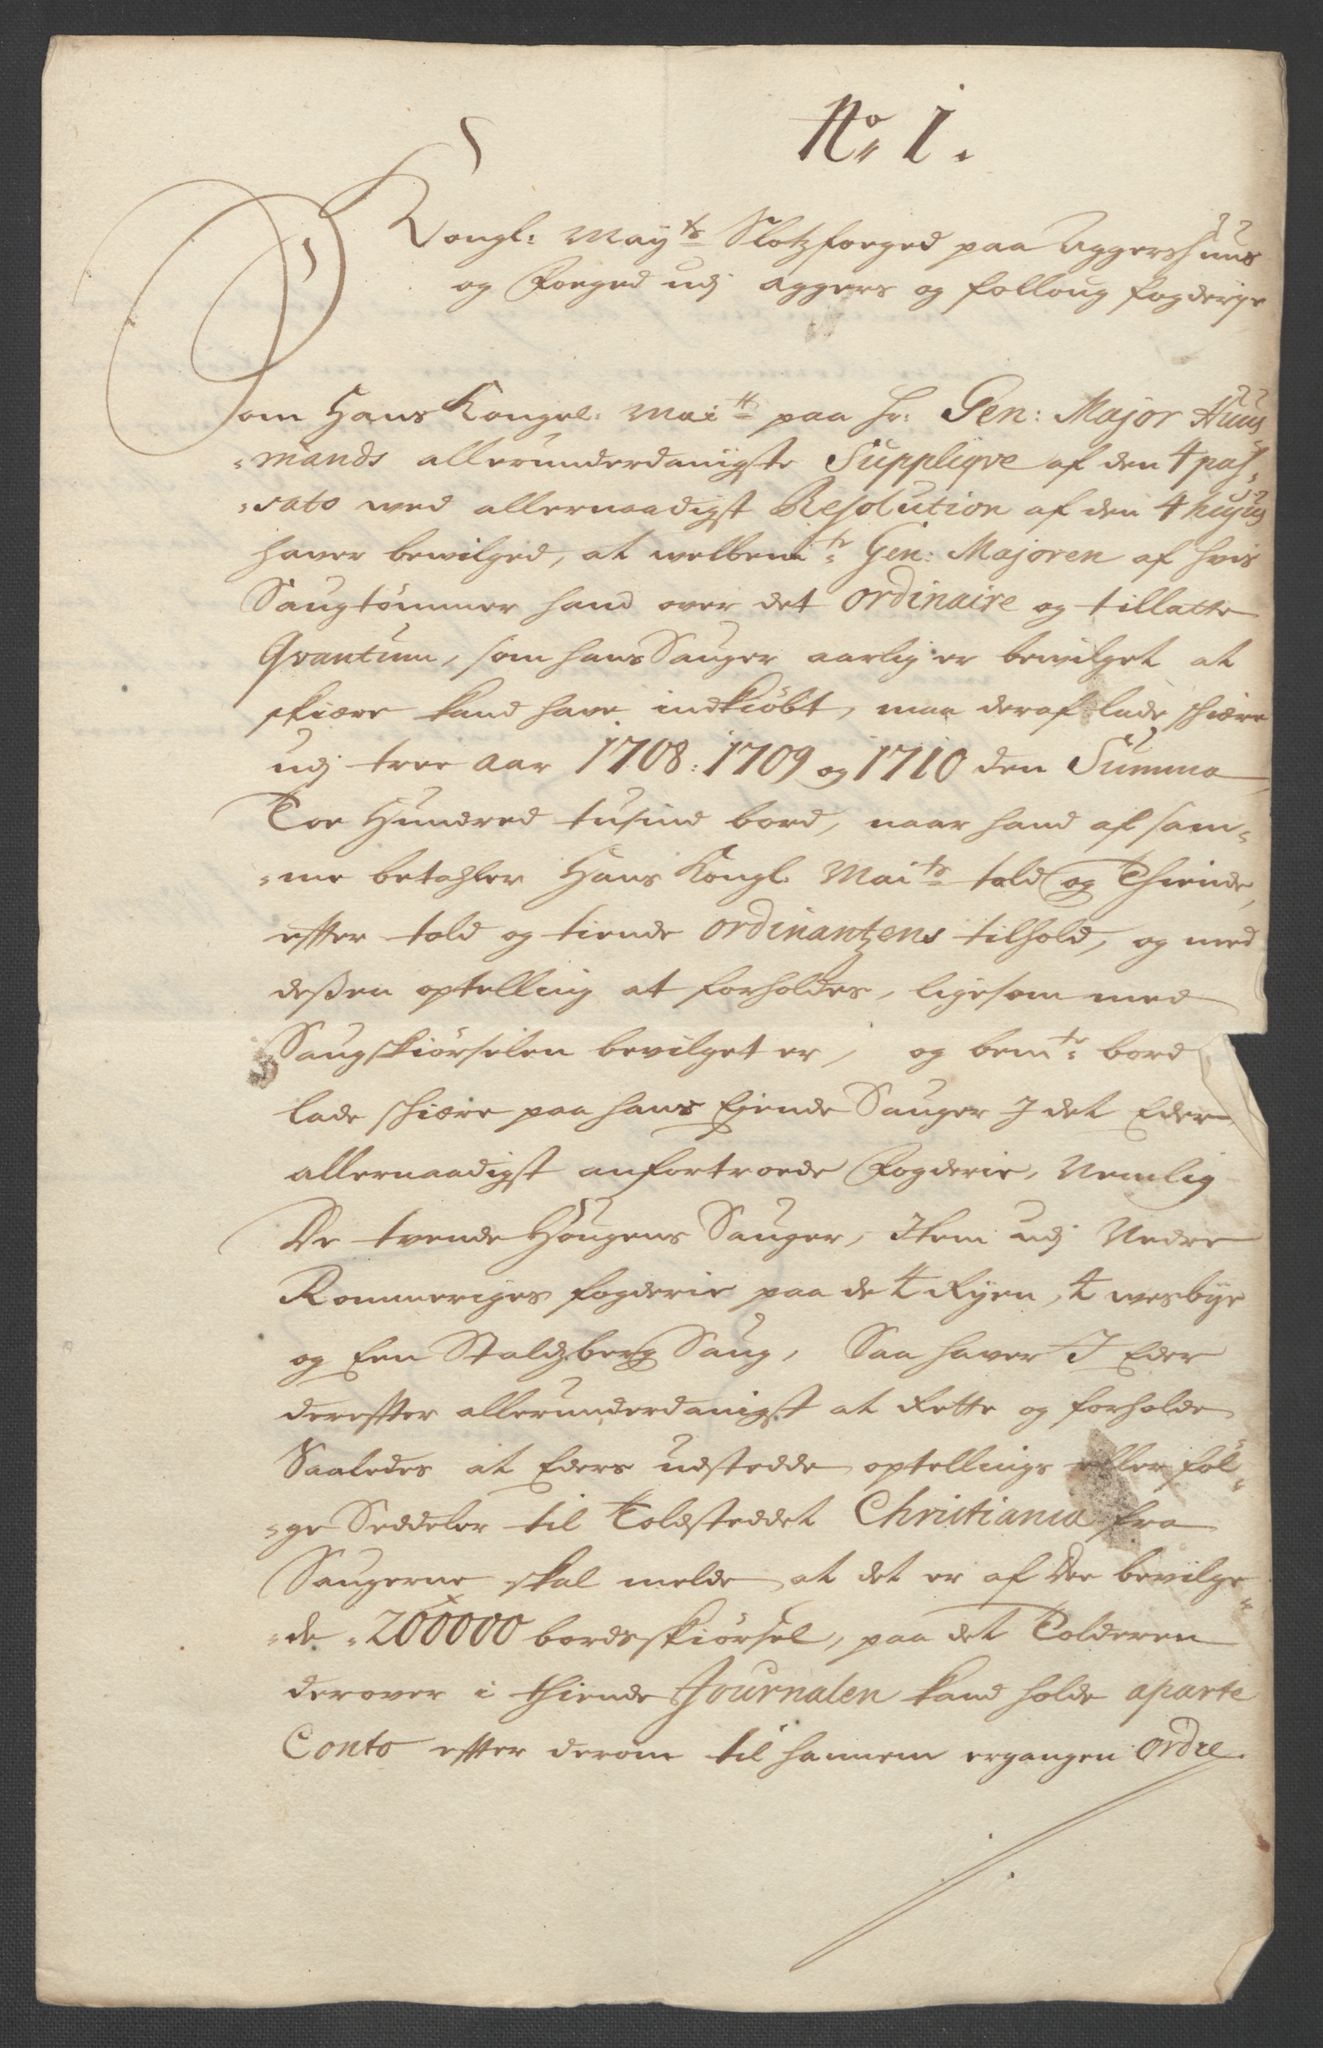 No. 1.
Kongl: May:ts Slotzfoged paa Aggershuus
og Foeged udj Aggers og Folloug fogderje
Som Hans Kongel: Mai:tt paa Hr: Gen: Major Huus
=mands allerunderdanigste Suppliqve af den 4 pas=
=sato med allernaadigst Resolution af den 4 hujus
haver bewilged, at welbem:te Gen: Majoren af hvis
Saugtømmer hand over det ordinaire og tillatte
Qvantum, som hans Sauger aarlig er bewilget at
skiære kand have indkiøbt, maa deraf lade skiære
udj tree aar 1708: 1709 og 1710 den Summa
Toe Hundred tusind bord, naar hand af sam=
=me betahler Hans Kongl. Mai:ts told og Thiende,
efter told og tiende ordinantzens tilhold, og med
deßen optelling at forholdes, ligesom med
Saugskiørselen bevilget er, og bem:te bord
lade skiære paa hans Ejende Sauger J det Eder
allernaadigst anfortroede Fogderie, Nemlig
De tvende Hougens Sauger, Item udj Nedre
Rommeriges fogderie paa de 4 Ryen, 4 wesbye
og Een Stalsberg Saug, Saa haver I Eder
derefter allerunderdanigst at Rette og forholde
Saaledes at Eders udstedde optellings eller føl=
=ge Seddeler til Toldstedet Christiania fra
Saugerne skal melde at det er af Dee bevilge=
=de 200000 bordsskiørsel, paa det Tolderen
derover i thiende Journalen kand holde aparte
Conto efter derom til hannem ergangen ordre.